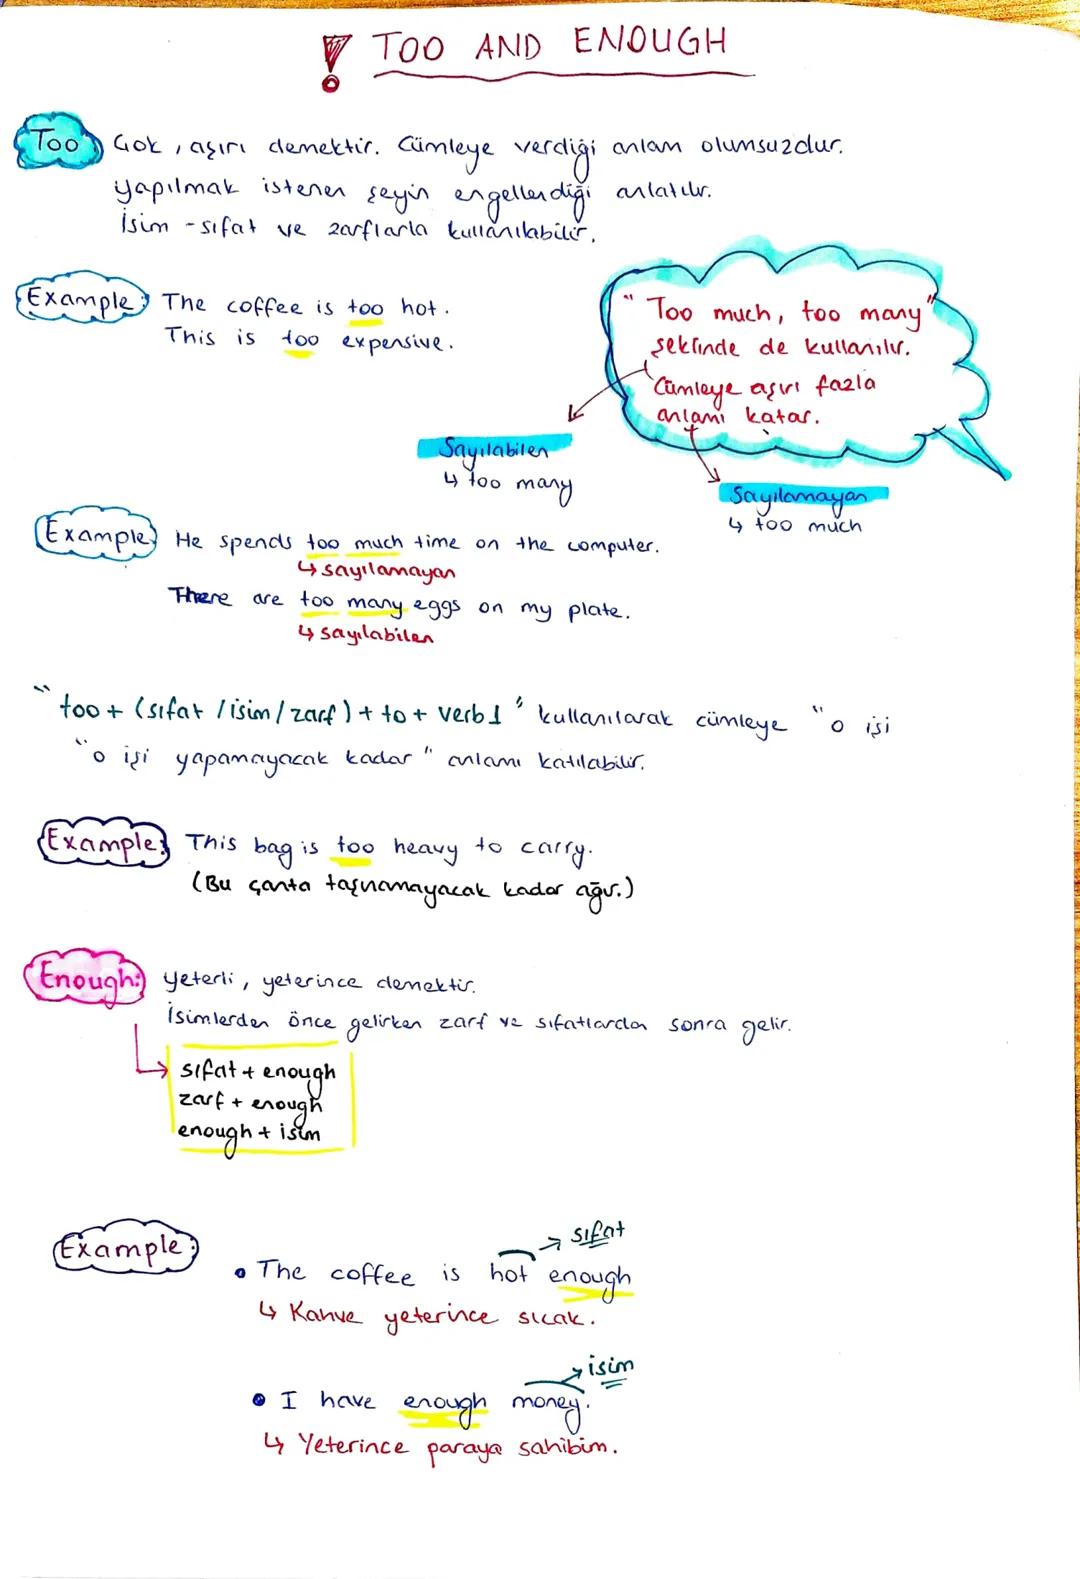 ! TOO AND ENOUGH
Too Çok, aşırı demektir. Cümleye verdiği anlam olumsuzdur.
yapılmak istenen şeyin engellendiği anlatılır.
İsim - sıfat ve zarflarla kullanılabilir.
Example: The coffee is too hot.
This is too expensive.
"Too much, too many"
şeklinde de kullanılır.
Cümleye aşırı fazla
anlamı katar.
Sayılabilen
↳ too many
Sayılamayan
↳ too much
Example: He spends too much time on the computer.
↳ sayılamayan
There are too many eggs on my plate.
↳ sayılabilen
"too + (sıfat / isim / zarf) + to + verb1" kullanılarak cümleye "o işi
"o işi yapamayacak kadar" anlamı katılabilir.
Example: This bag is too heavy to carry.
(Bu çanta taşınamayacak kadar ağır.)
Enough: yeterli, yeterince demektir.
İsimlerden önce gelirken zarf ve sıfatlardan sonra gelir.
sıfat + enough
zarf + enough
enough + isim
Example:
→ sıfat
• The coffee is hot enough
↳ Kahve yeterince sıcak.
→ isim
• I have enough money.
↳ Yeterince paraya sahibim.